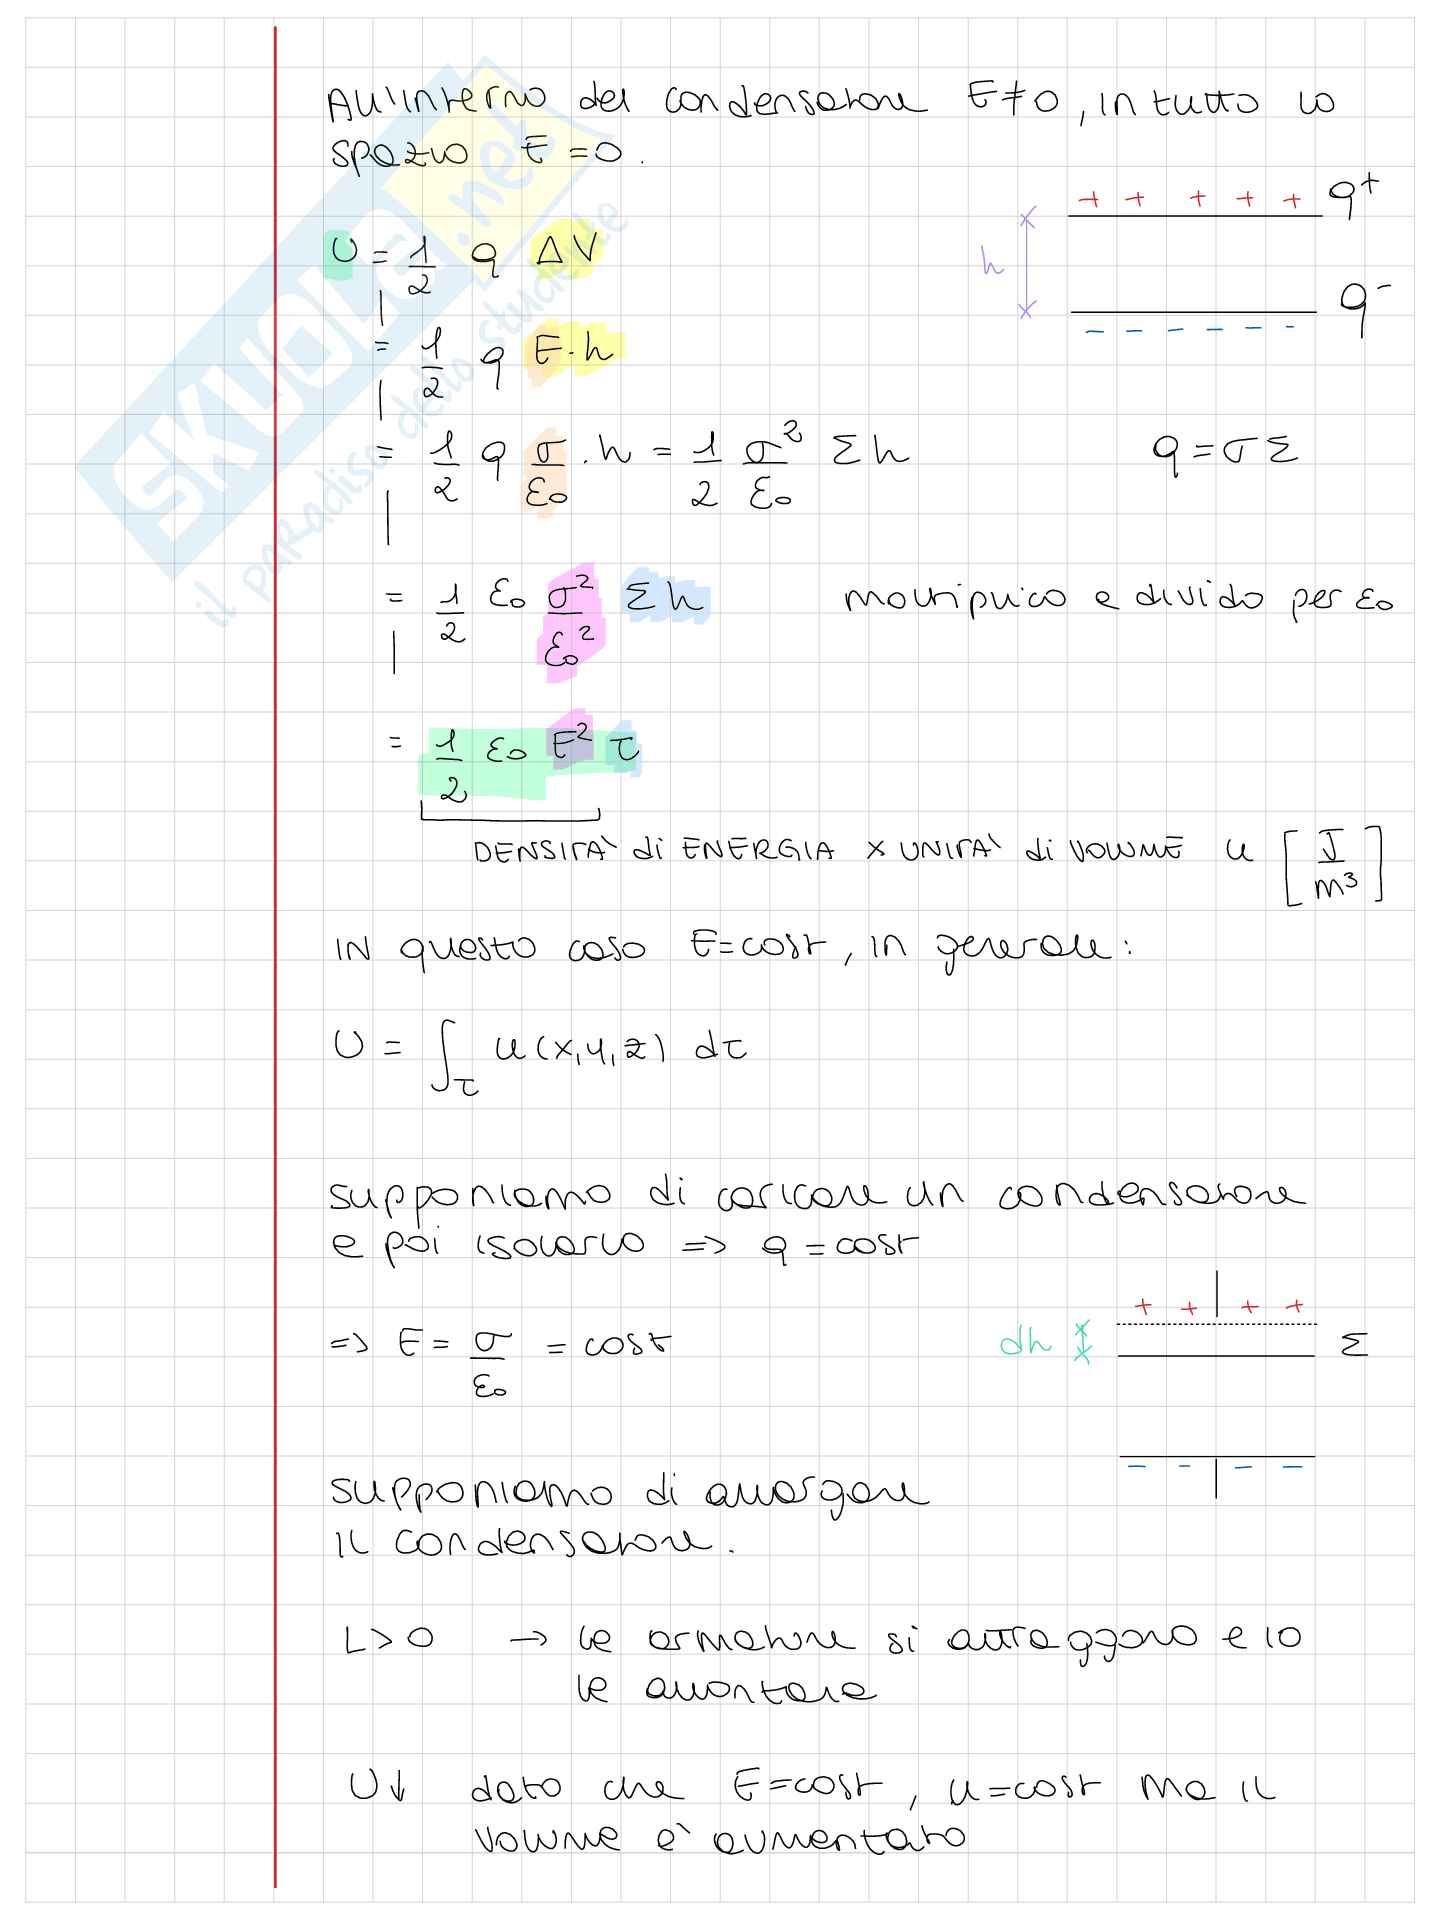 All'interno del condensatore E≠0, in tutto lo
spazio E =0.
q⁺
h
q⁻
U = 1/2 q ΔV
= 1/2 q E·h
= 1/2 q σ/ε₀ · h = 1/2 σ²/ε₀ Σ h
q = σ Σ
= 1/2 ε₀ σ²/ε₀² Σ h
moltiplico e divido per ε₀
= 1/2 ε₀ E² τ
DENSITA' di ENERGIA x UNITA' di VOLUME u [J/m³]
IN questo caso E=cost, in generale:
U = ∫τ u(x,y,z) dτ
supponiamo di caricare un condensatore
e poi isolarlo => q = cost
=> E = σ/ε₀ = cost
dh
Σ
supponiamo di allargare
il condensatore.
L>0 → le armature si attraggono e io
le allontano
U↓ dato che E=cost, u=cost ma il
volume è aumentato
SKUOLA.net
il paradiso dello studente